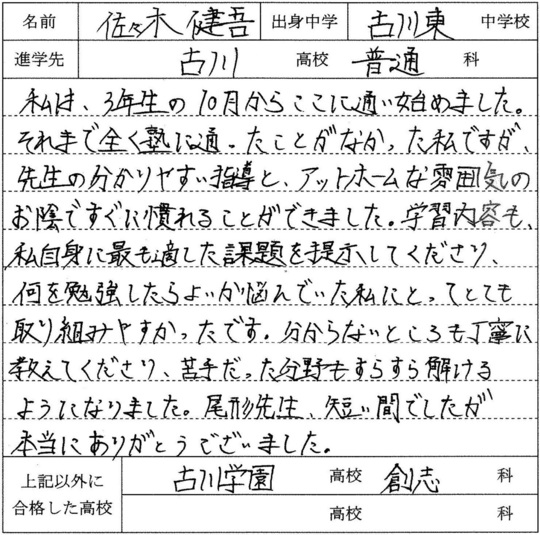 名前 佐々木 健吾 出身中学 古川東 中学校
進学先 古川 高校 普通 科
私は、3年生の10月からここに通い始めました。
それまで全く塾に通ったことがなかった私ですが、
先生の分かりやすい指導と、アットホームな雰囲気の
お陰ですぐに慣れることができました。学習内容も、
私自身に最も適した課題を提示してくださり、
何を勉強したらよいか悩んでいた私にとってとても
取り組みやすかったです。分からないところも丁寧に
教えてくださり、苦手だった分野もすらすら解ける
ようになりました。尾形先生、短い間でしたが
本当にありがとうございました。
上記以外に 古川学園 高校 創志 科
合格した高校 高校 科